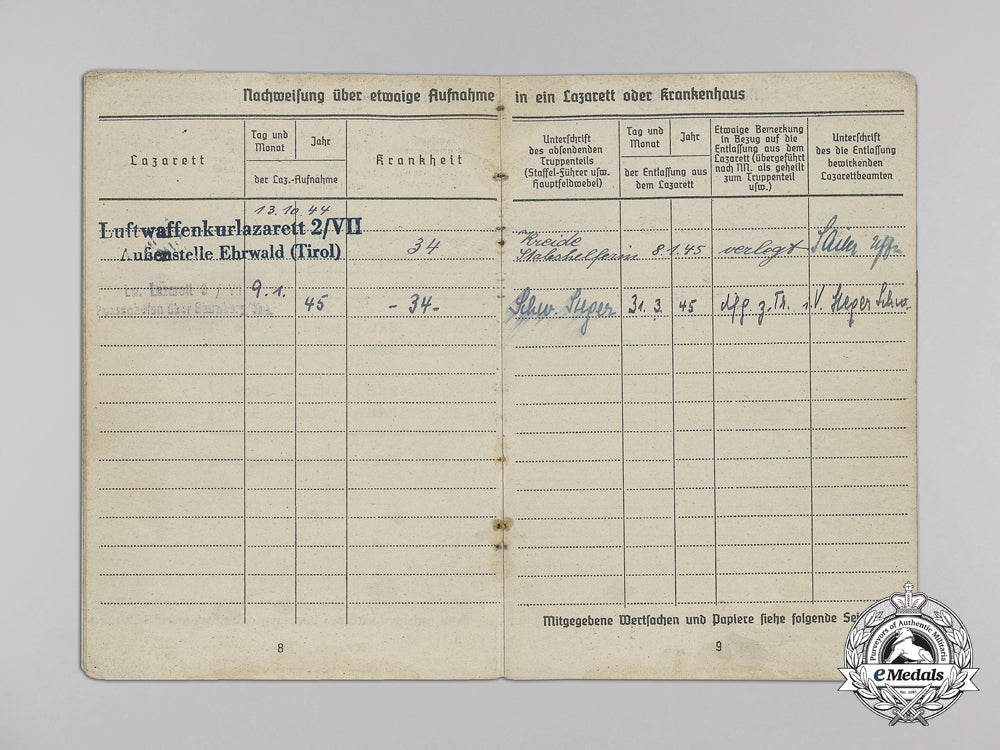 Nachweisung über etwaige Aufnahme in ein Lazarett oder Krankenhaus
Lazarett
Tag und
Monat
Jahr
der Laz.-Aufnahme
Krankheit
13.10.44
Luftwaffenkurlazarett 2/VII
Außenstelle Ehrwald (Tirol)
34
Lw. Lazarett
9.1.
45
-34-
8
Unterschrift
des absendenden
Truppenteils
(Staffel-Führer usw.
Hauptfeldwebel)
Tag und
Monat
Jahr
der Entlassung aus
dem Lazarett
Etwaige Bemerkung
in Bezug auf die
Entlassung aus dem
Lazarett (übergeführt
nach NN. als geheilt
zum Truppenteil
usw.)
Unterschrift
des die Entlassung
bewirkenden
Lazarettbeamten
Kreide
Stabshelferin
8.1.45
verlegt
Schw. Steger
31. 3. 45
z. Tr.
i.V. Steger Schw.
Mitgegebene Wertsachen und Papiere siehe folgende
9
Purveyors of Authentic Militaria
eMedals